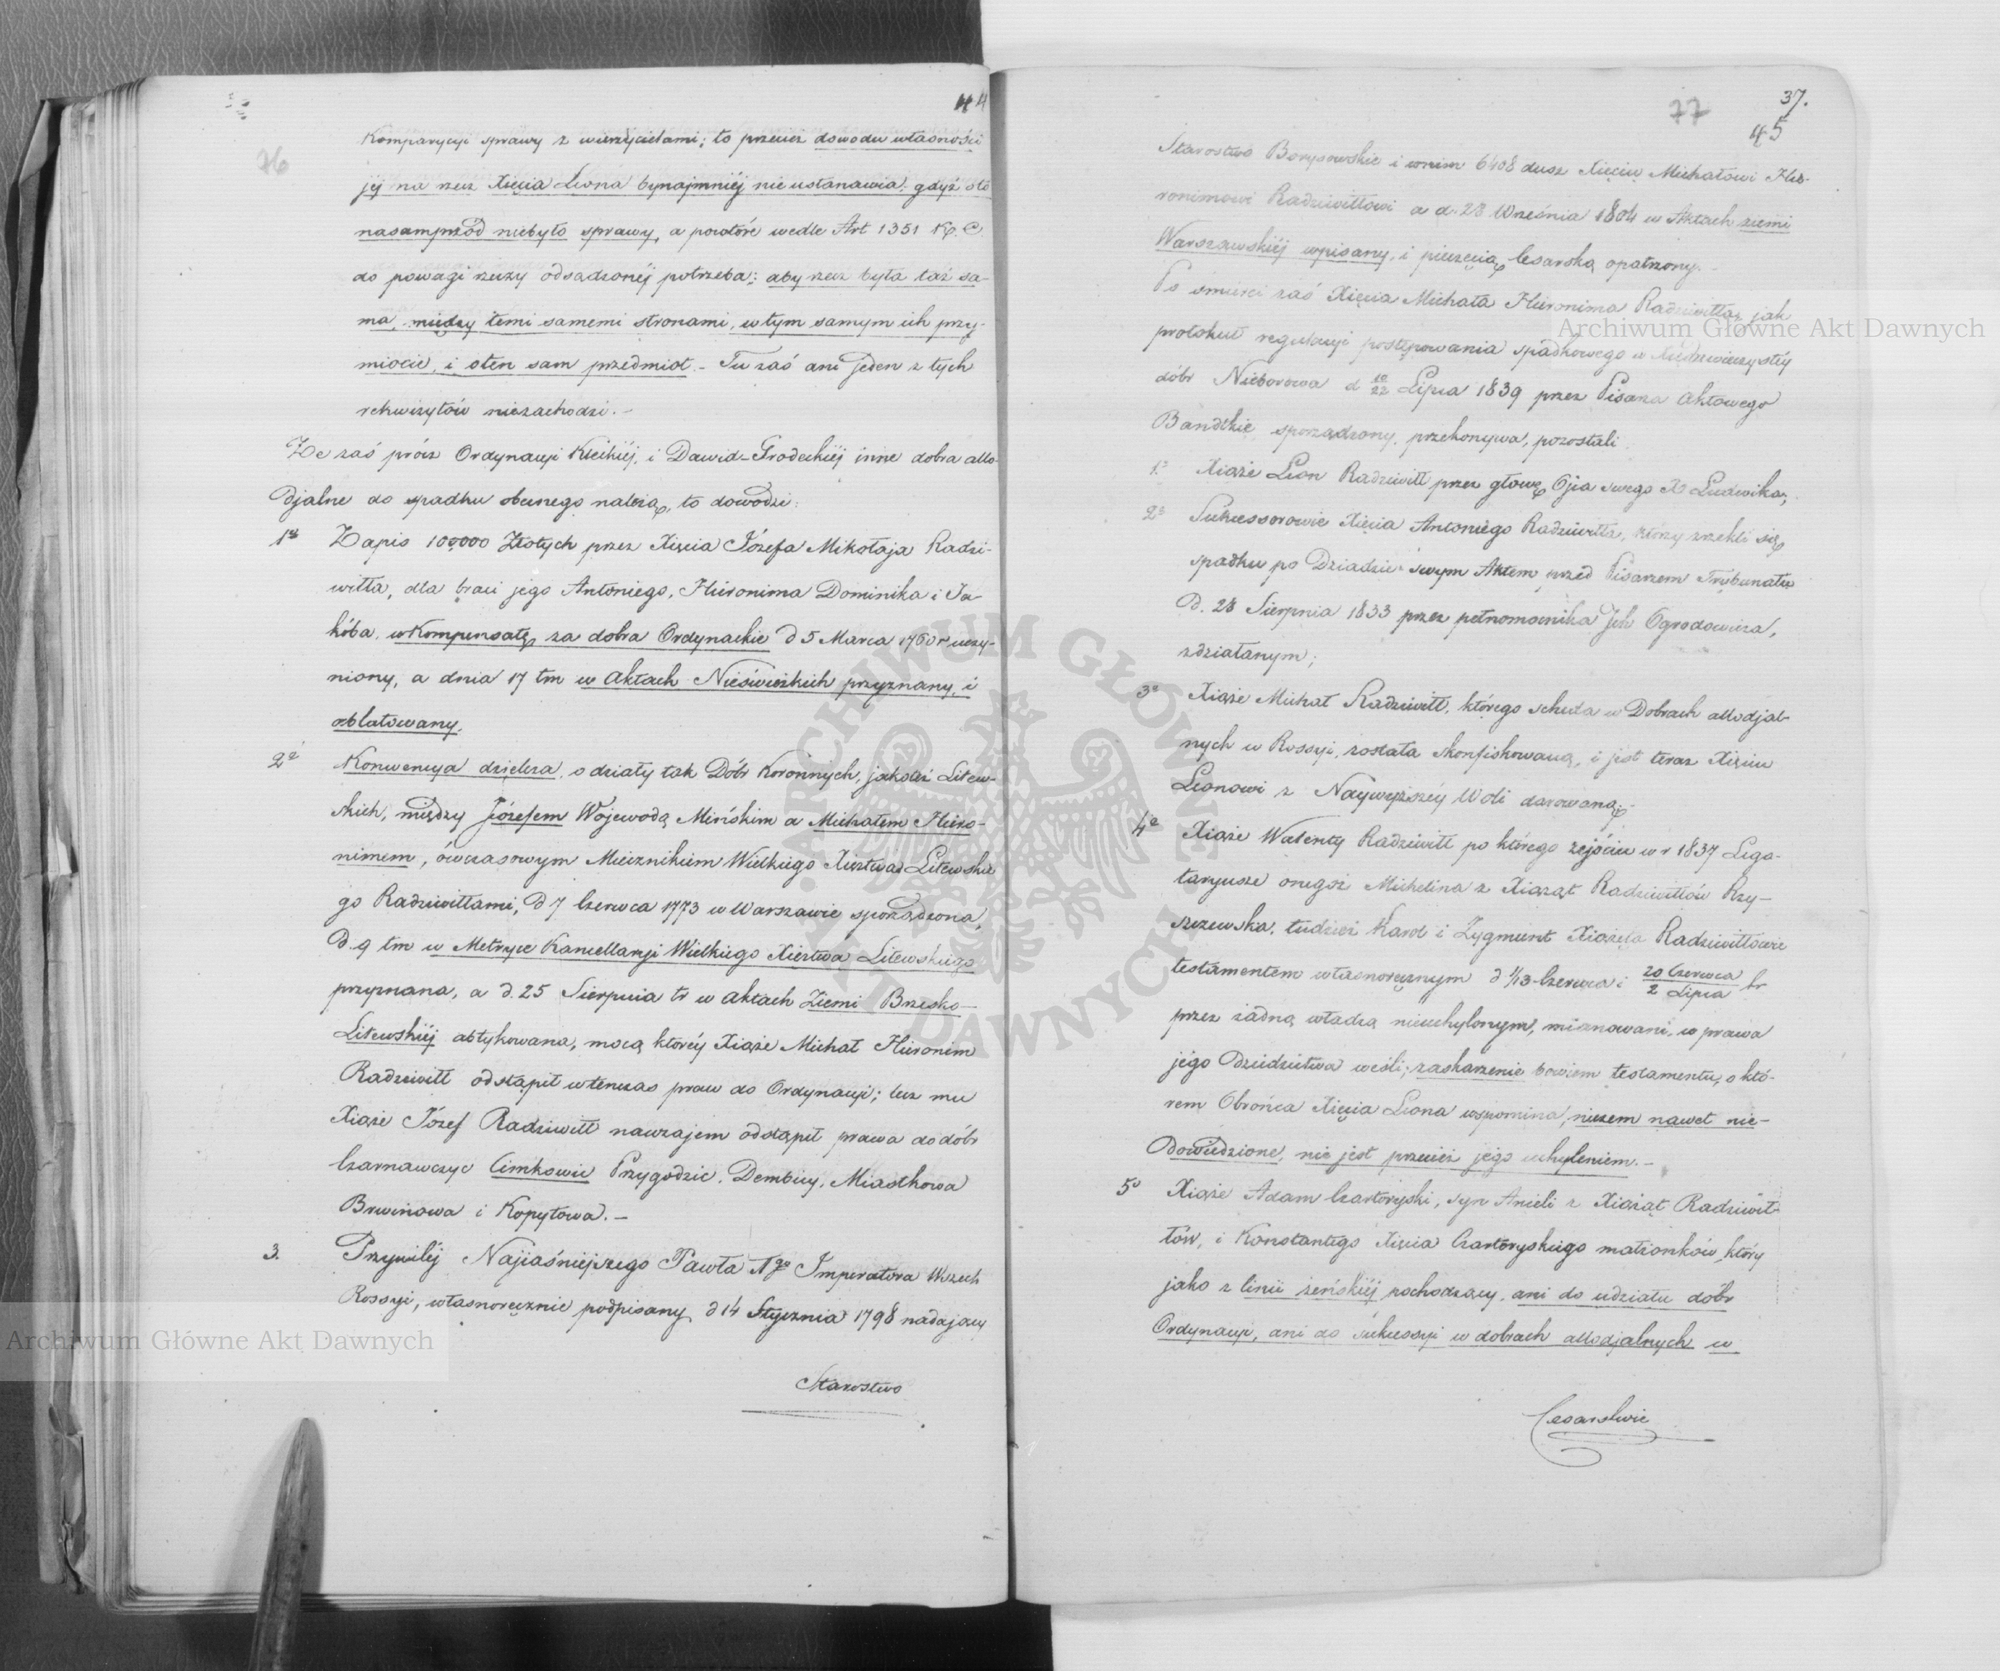 44
76
Komparycyi sprawy z wierzycielami; to przecież dowodu własności
jéj na rzecz Xięcia Leona bynajmniéj nie ustanawia; gdyż
nasamprzód niebyło sprawy, a powtóre wedle Art 1351 K. C.
do powagi rzeczy odsądzonéj potrzeba; aby rzecz była taż sa-
ma, między temi samemi stronami, w tym samym ich przy-
miocie, i oten sam przedmiot. – Tu zaś ani jeden z tych
rekwizytów niezachodzi. –
Że zaś prócz Ordynacyi Kleckiéj, i Dawid-Grodeckiéj inne dobra allo-
djalne do spadku obecnego należą, to dowodzi:
1º Zapis 100,000 Złotych przez Xięcia Józefa Mikołaja Radzi-
wiłła, dla braci jego Antoniego, Hieronima Dominika i Ja-
kóba, w Kompensatę za dobra Ordynackie d 5 Marca 1760 r uczy-
niony, a dnia 17 tm w Aktach Nieświezkich przyznany, i
oblatowany.
2º Konwencya dzielcza, o działy tak Dóbr Koronnych, jakoteż Litew-
skich, między Józefem Wojewodą Mińskim a Michałem Hiero-
nimem, ówczasowym Miecznikiem Wielkiego Xięztwa Litewskie
go Radziwiłłami, d 7 Czerwca 1773 w Warszawie sporządzona,
d. 9 tm w Metryce Kancellaryi Wielkiego Xięztwa Litewskiego
przyznana, a d. 25 Sierpnia tr w Aktach Ziemi Brzesko-
Litewskiéj aktykowana, mocą któréy Xiąże Michał Hieronim
Radziwiłł odstąpił wtenczas praw do Ordynacyi; lecz mu
Xiąże Józef Radziwiłł nawzajem odstąpił prawa do dóbr
Czarnawczyc Cimkowic Przygodzic, Dembicy, Miastkowa
Brwinowa i Kopytowa. –
3. Przywiléj Najjaśniejszego Pawła 1go Imperatora Wszech
Rossyi, własnoręcznie podpisany, d 14 Stycznia 1798 nadający
Starostwo
37.
77
45
Starostwo Borysowskie i wnim 6408 dusz Xięciu Michałowi Hie-
ronimowi Radziwiłłowi a d. 28 Września 1804 w Aktach ziemi
Warszawskiéj wpisany, i pieczęcią Cesarską opatrzony. –
Po śmierci zaś Xięcia Michała Hieronima Radziwiłła, jak
protokuł regulacyi postępowania spadkowego w Xiędzewieczystéy
dóbr Nieborowa d 10/22 Lipca 1839 przez Pisarza Aktowego
Bandtkie sporządzony, przekonywa, pozostali.
1º Xiąże Leon Radziwiłł przez głowę Ojca swego X Ludwika;
2º Sukcessorowie Xięcia Antoniego Radziwiłła, którzy zrzekli się
spadku po Dziadzie swym Aktem przed Pisarzem Trybunału
d. 28 Sierpnia 1833 przez pełnomocnika Ich Ogrodowicza,
zdziałanym;
3º Xiąże Michał Radziwiłł, którego scheda w Dobrach allodjal-
nych w Rossyi, została skonfiskowaną, i jest teraz Xięciu
Leonowi z Naywyższéy Woli darowaną; –
4º Xiąże Walenty Radziwiłł po którego zejściu w r 1837 Lega-
taryusze onegoż Michelina z Xiążąt Radziwiłłów Rzy-
szczewska, tudzież Karol i Zygmunt Xiążęta Radziwiłłowie
testamentem własnoręcznym d 1/13 Czerwca i 20 Czerwca / 2 Lipca br
przez żadną władzą nieuchylonym, mianowani, w prawa
jego dziedzictwa weśli; zaskarżenie bowiem testamentu, o któ-
rem Obrońca Xięcia Leona wspomina, niczem nawet nie-
dowiedzione, nie jest przecież jego uchyleniem. –
5º Xiąże Adam Czartoryski, syn Anieli z Xiążąt Radziwił-
łów, i Konstantego Xięcia Czartoryskiego małżonków, który
jako z linii żeńskiéj pochodzący, ani do udziału dóbr
Ordynacyi, ani do sukcessyi w dobrach allodjalnych w
Cesarstwie
Archiwum Główne Akt Dawnych
Archiwum Główne Akt Dawnych
ARCHIWUM GŁÓWNE AKT DAWNYCH